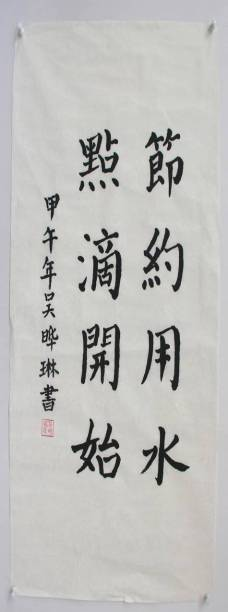 節約用水
點滴開始
甲午年吴晔琳書